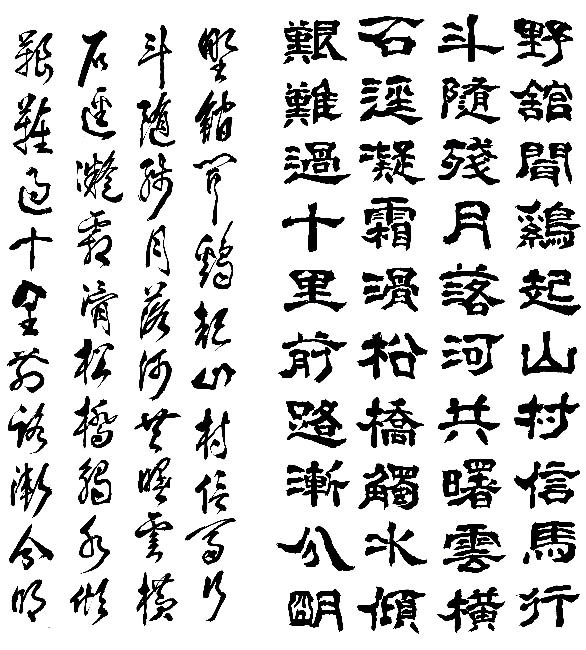 野館聞鷄起山村信馬行
斗隨殘月落河共曙雲橫
石逕凝霜滑松橋觸水傾
艱難過十里前路漸分明
野館聞鷄起山村信馬行
斗隨殘月落河共曙雲橫
石逕凝霜滑松橋觸水傾
艱難過十里前路漸分明